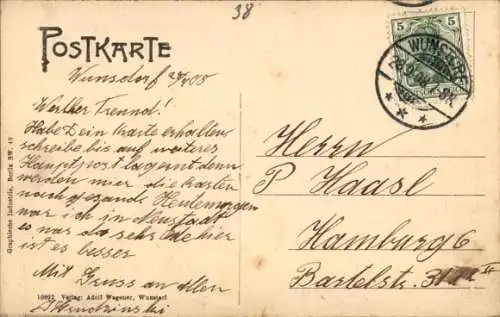 38
POSTKARTE
5 5
WUNSTORF
Wunsdorf
Werther Freund!
Habe Dein Karte erhalten
schreibe bis auf weiteres
Hauptpost lagernt denn
werden mier die Karten
nachgesand. Heutemorgen
war ich in Neustadt
es war da sehr öde hier
ist es besser
Mit Gruss an Allen
Herrn
P Haasl
Hamburg 6
Bartelstr.
Graphische Industrie, Berlin SW. 49
10922 Verlag: Adolf Wagener, Wunstorf